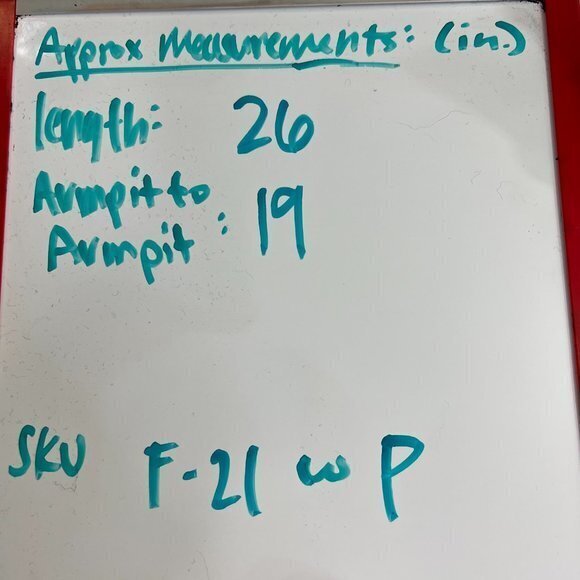 Approx Measurements: (in.)
length: 26
Armpit to
Armpit : 19
SKU F-21 w P